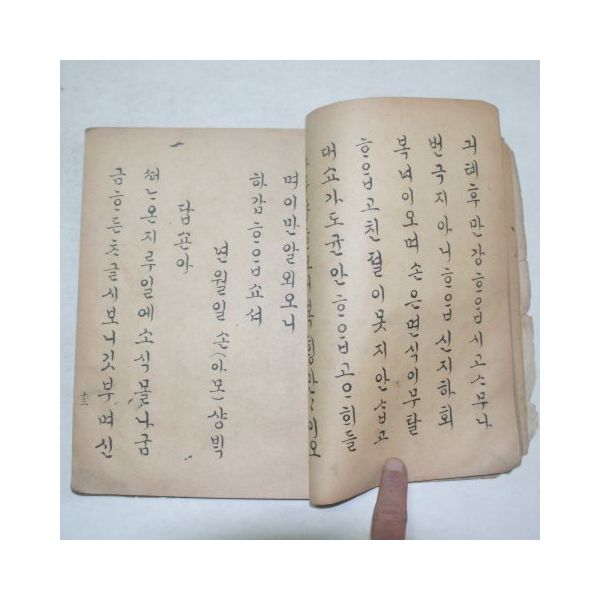 긔톄후만강ᄒᆞ읍시고ᄉᆞ무나
번극지아니ᄒᆞ읍신지하회
복며이오며손은면식이무탈
ᄒᆞ읍고친졀이못지안ᄉᆞᆸ고
대쇼가도균안ᄒᆞ읍고ᄋᆞ희들
며이만알외오니
하감ᄒᆞ읍쇼셔
년월일손(아모)샹ᄇᆡᆨ
답손아
떠ᄂᆞ온지루일에소식몰나굼
금ᄒᆞ든ᄎᆞ글시보니깃부며신
十三